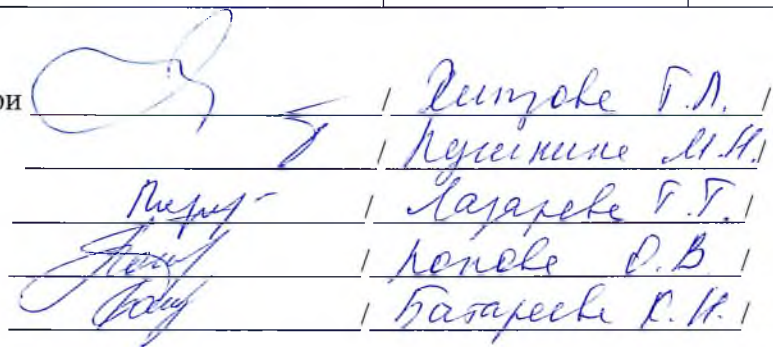 ри / Хитрова Г.Л. /
/ Пушнина М.Н. /
/ Лазарева Т.Т. /
/ Попова О.В /
/ Батареева К.Н. /